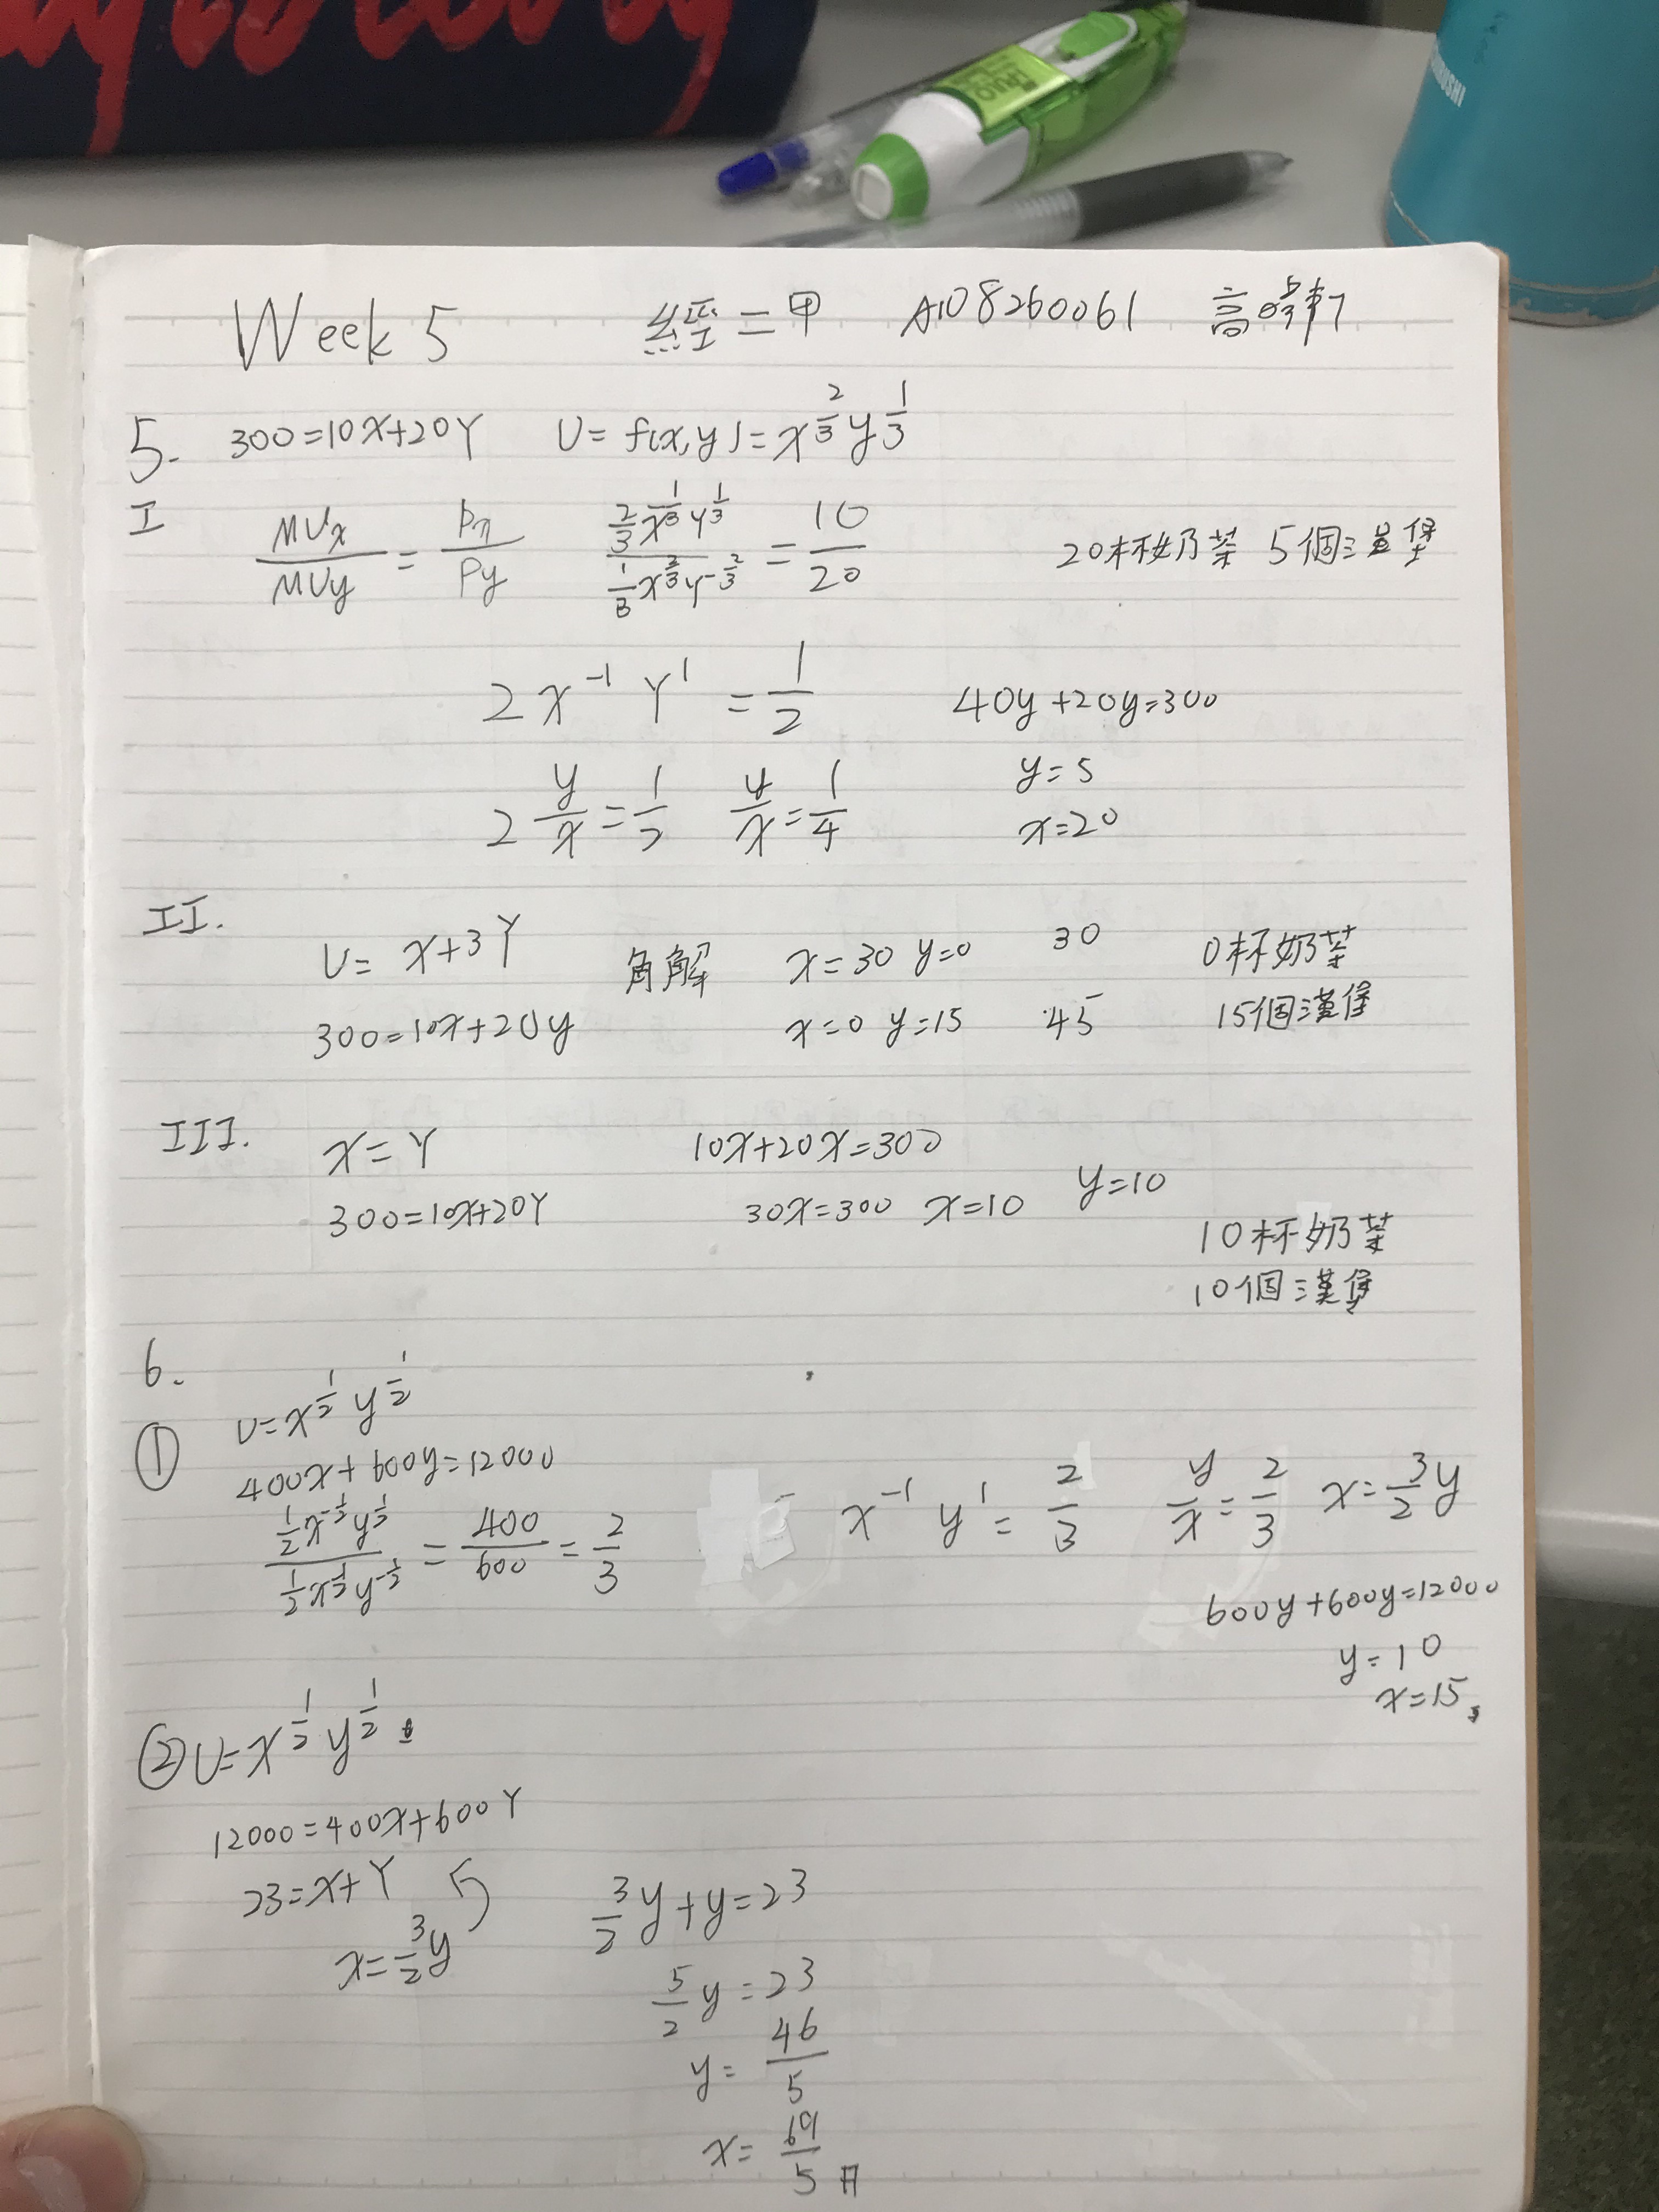 Week 5 經二甲 A108260061 高嶂軒
5. 300=10x+20Y U= f(x,y)=x^{2/3}y^{1/3}
I MUx/MUy = Px/Py (2/3 x^{1/3} y^{1/3})/(1/3 x^{2/3} y^{-2/3}) = 10/20 20杯奶茶 5個漢堡
2x^{-1} Y^1 = 1/2 40y+20y=300
2 y/x = 1/2 y/x = 1/4 y=5
x=20
II. U= x+3Y 角解 x=30 y=0 30 0杯奶茶
300=10x+20y x=0 y=15 45 15個漢堡
III. x=Y 10x+20x=300
300=10x+20Y 30x=300 x=10 y=10
10杯奶茶
10個漢堡
6.
① U=x^{1/2} y^{1/2}
400x+600y=12000
(1/2 x^{-1/2} y^{1/2})/(1/2 x^{1/2} y^{-1/2}) = 400/600 = 2/3 x^{-1} y^1 = 2/3 y/x = 2/3 x=3/2 y
600y+600y=12000
y=10
x=15
② U=x^{1/2} y^{1/2}
12000=400x+600Y
23=x+Y
x=3/2 y
3/2 y+y=23
5/2 y=23
y= 46/5
x= 69/5